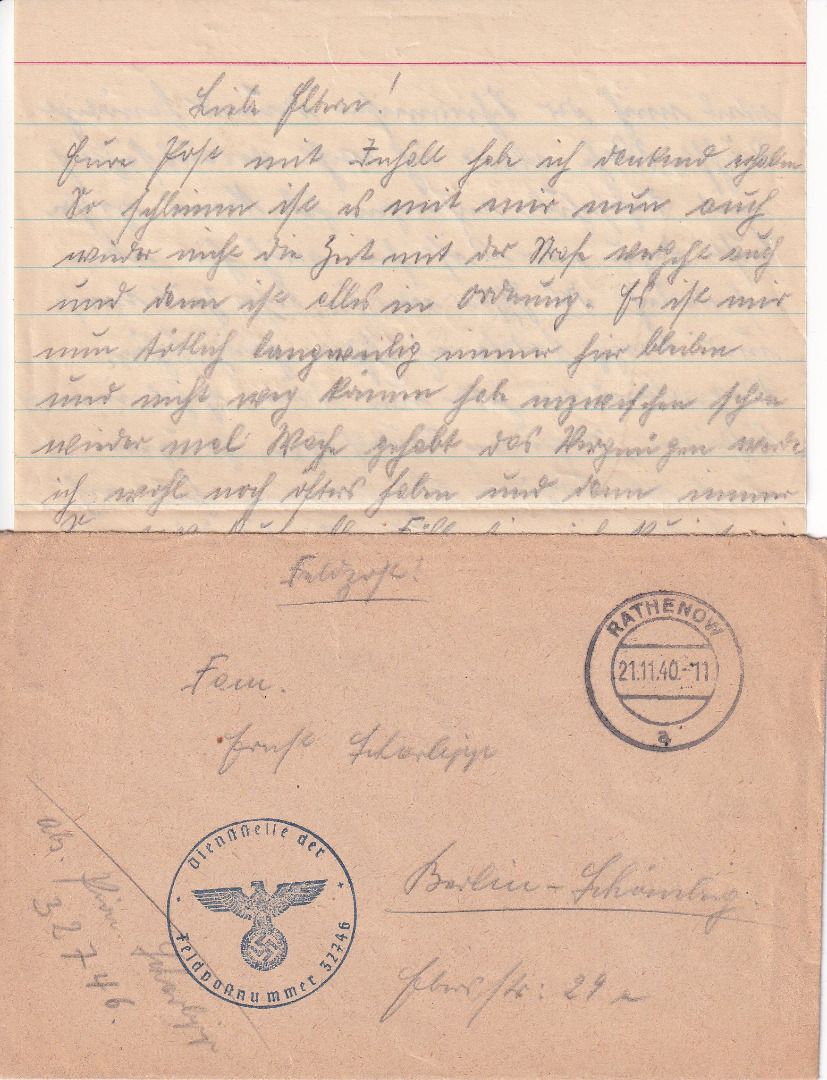 Liebe Eltern!
Eure Post mit Inhalt habe ich dankend erhalten
So schlimm ist es mit mir nun auch
wieder nicht die Zeit mit der Strafe vergeht auch
und dann ist alles in Ordnung. Es ist mir
nun tötlich langweilig immer hier bleiben
und nicht weg können habe inzwischen schon
wieder mal Wache gehabt das Vergnügen werde
ich wohl noch öfters haben und dann immer
Feldpost!
RATHENOW
21.11.40.-11
a
Fam.
Ernst
Berlin-Schöneberg
Ebersstr: 29 a
Abs. Pion
32746.
Dienststelle der
Feldpostnummer 32746